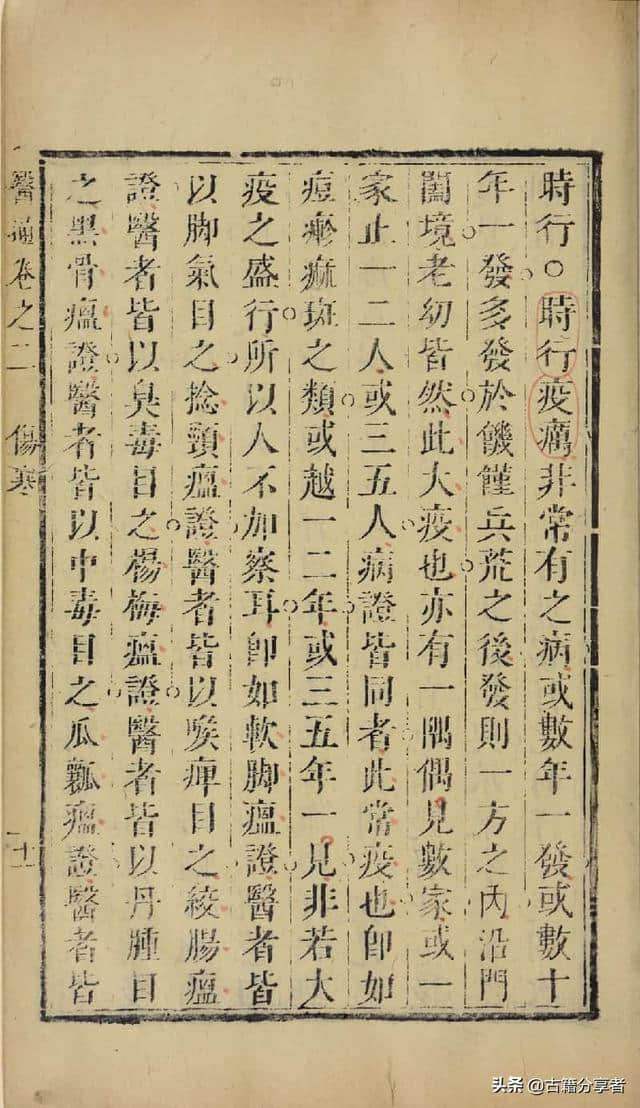 時行○時行疫癘非常有之病或數年一發或數十
年一發多發於饑饉兵荒之後發則一方之內沿門
闔境老幼皆然此大疫也亦有一隅偶見數家或一
家止一二人或三五人病證皆同者此常疫也卽如
痘瘮痲斑之類或越一二年或三五年一見非若大
疫之盛行所以人不加察耳卽如軟脚瘟證醫者皆
以脚氣目之捻頸瘟證醫者皆以喉痺目之絞腸瘟
證醫者皆以臭毒目之楊梅瘟證醫者皆以丹腫目
之黑骨瘟證醫者皆以中毒目之瓜瓤瘟證醫者皆
醫通卷之二 傷寒 十一
头条 @古籍分享者